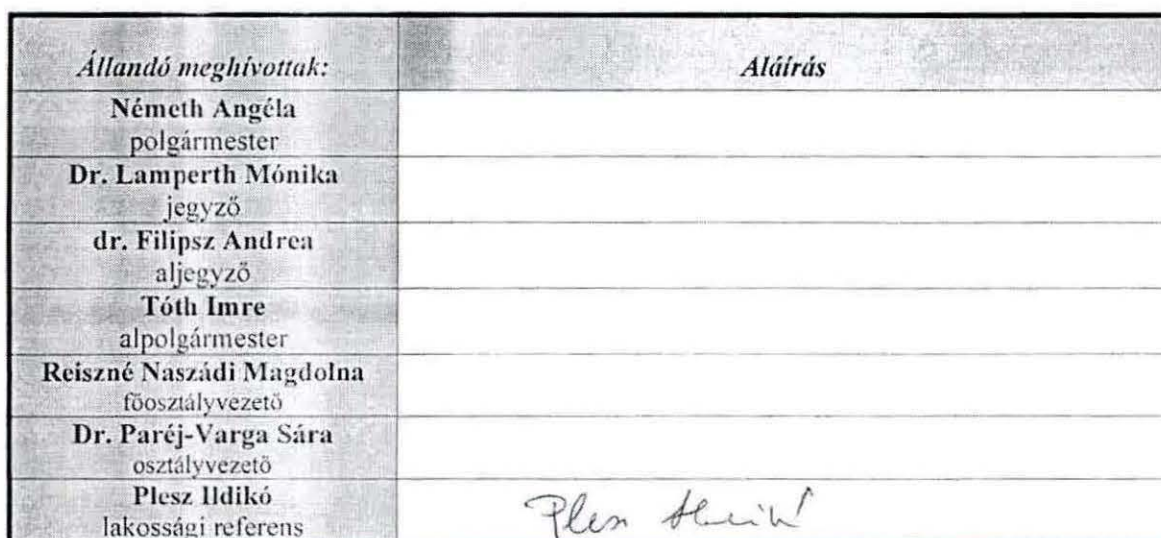 Állandó meghívottak: Aláírás
Németh Angéla
polgármester
Dr. Lamperth Mónika
jegyző
dr. Filipsz Andrea
aljegyző
Tóth Imre
alpolgármester
Reiszné Naszádi Magdolna
főosztályvezető
Dr. Paréj-Varga Sára
osztályvezető
Plesz Ildikó
lakossági referens
Plesz Ildikó